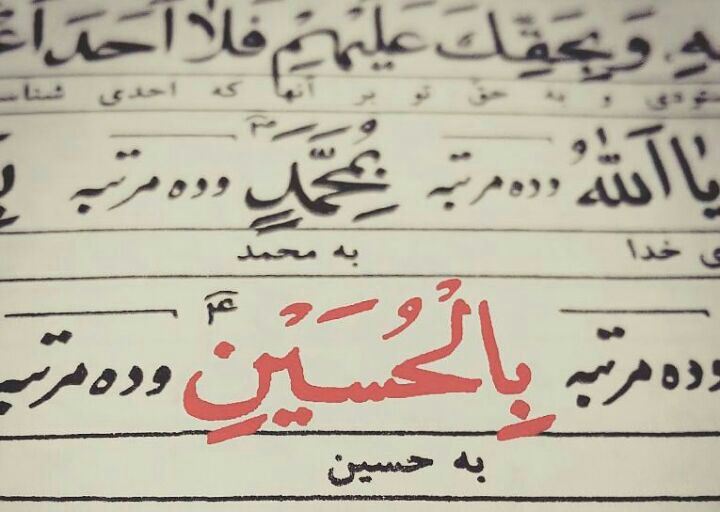 وَبِحَقِّكَ عَلَيْهِمْ فَلاٰ اَحَدَ
و به حق تو بر آنها که احدی
يٰا اَللهُ وده مرتبه بِمُحَمَّدٍ وده مرتبه
خدا به محمد
وده مرتبه بِالْحُسَيْنِ وده مرتبه
به حسین